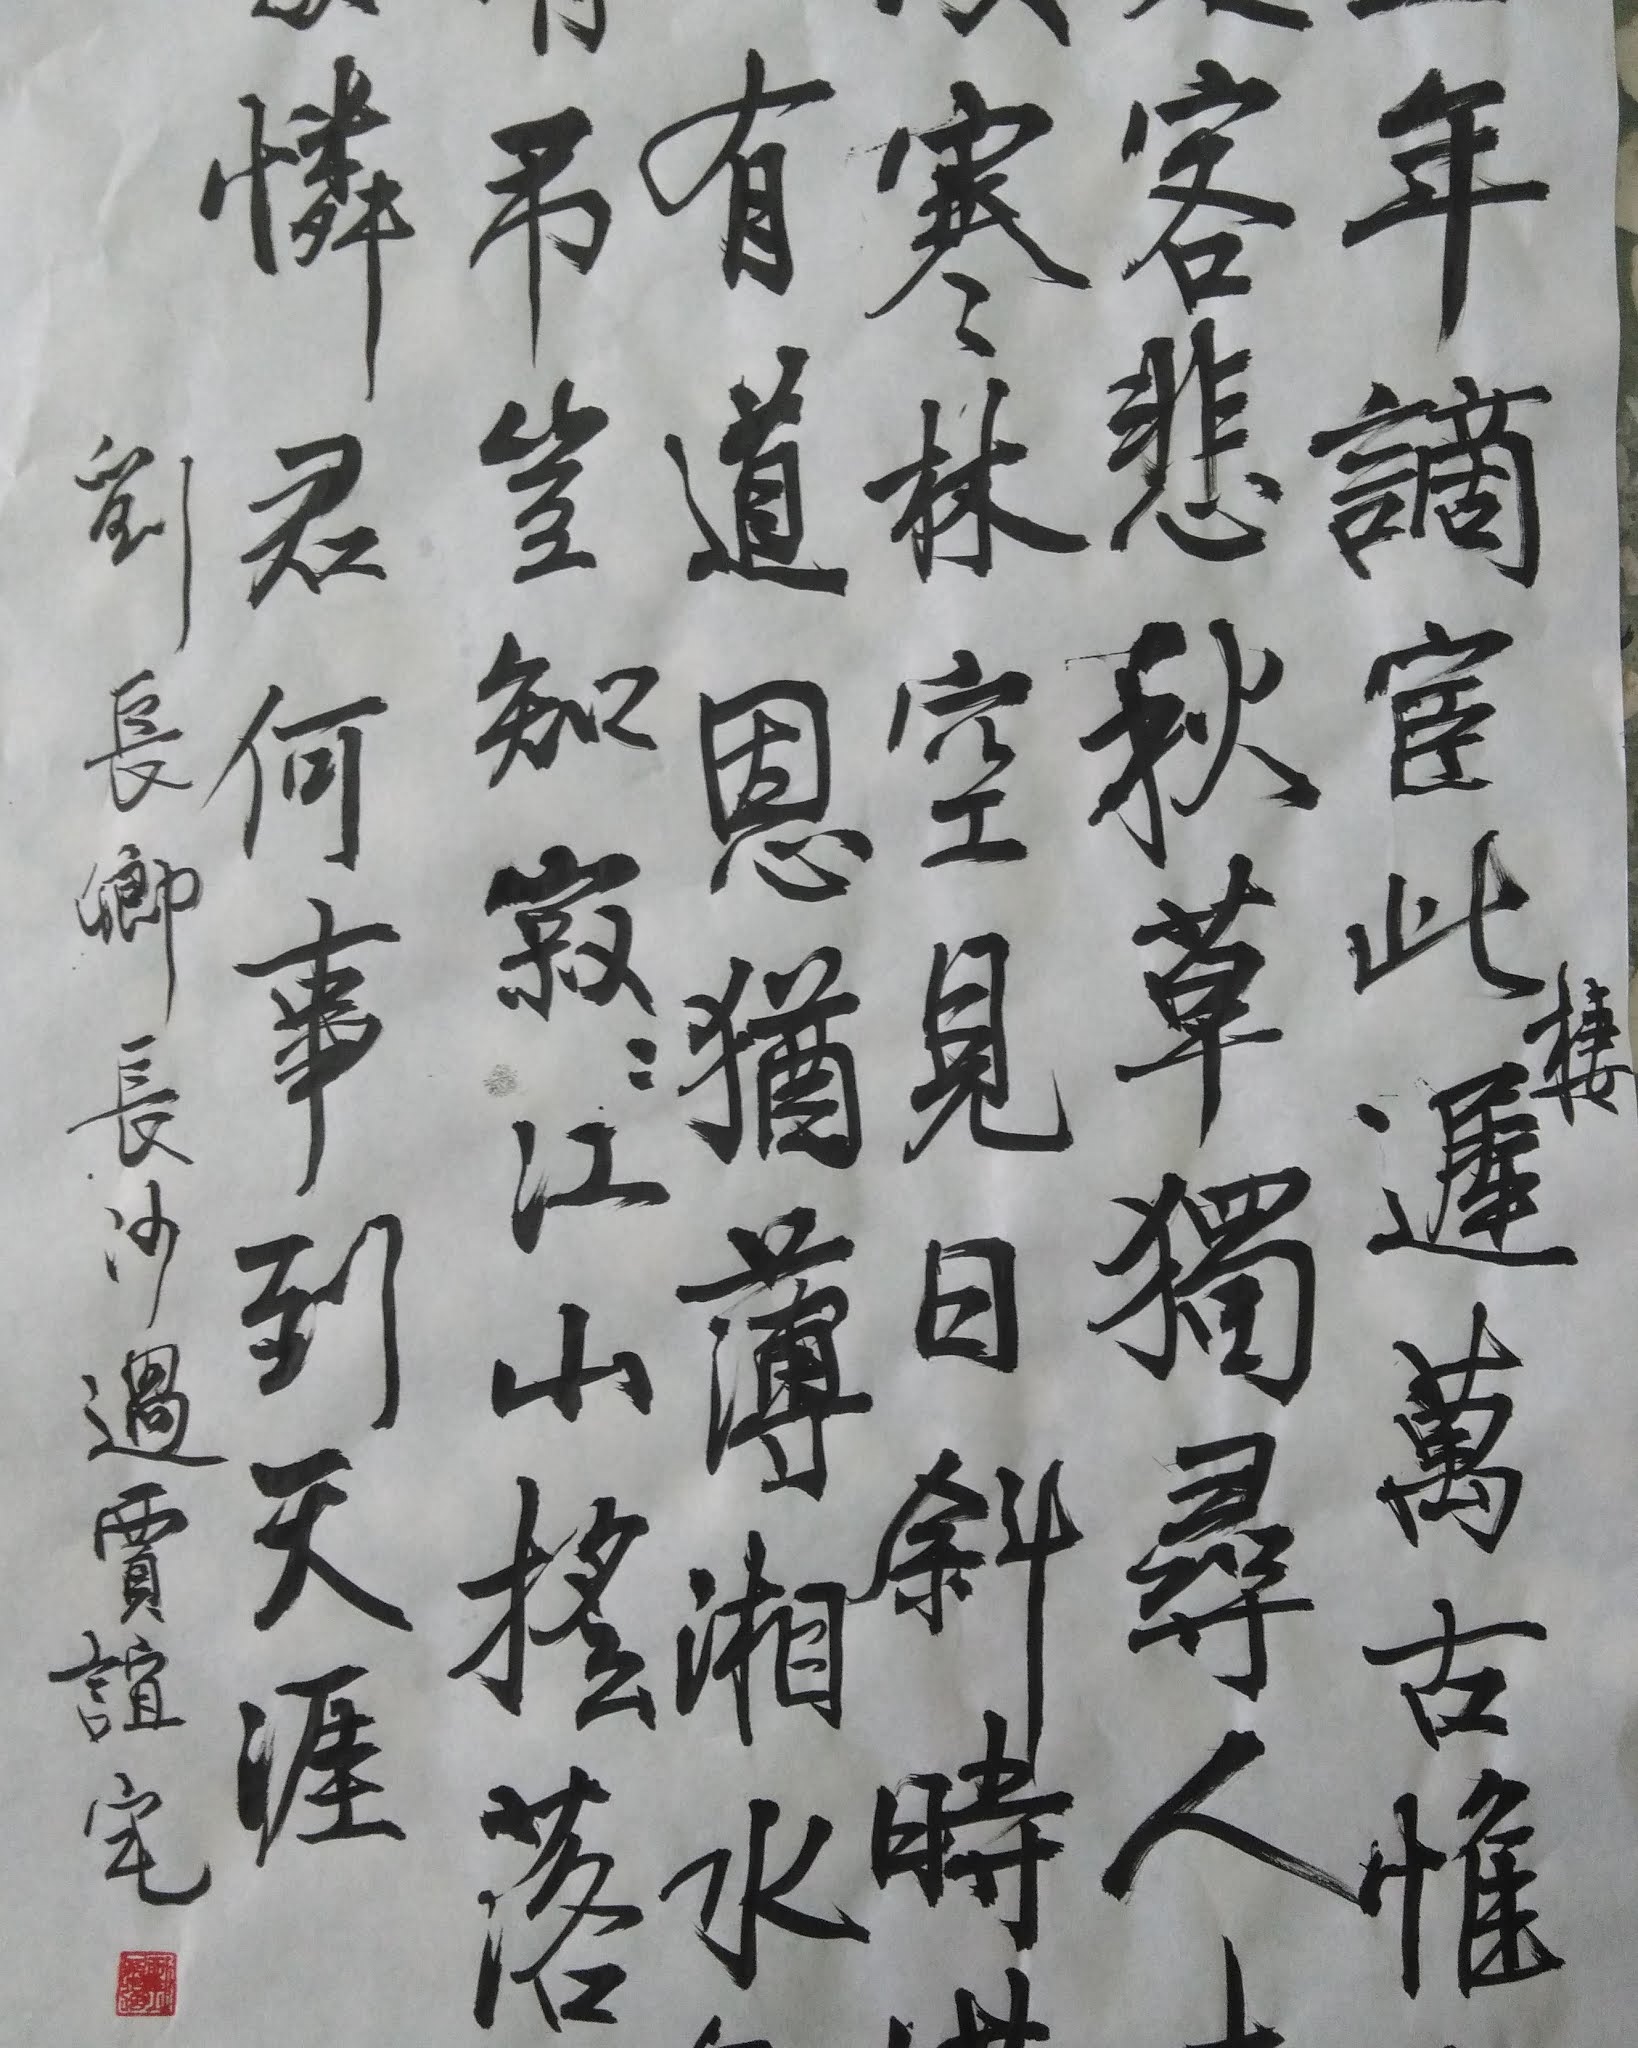 年謫宦此遲萬古惟
棲
客悲秋草獨尋人
寒林空見日斜時
有道恩猶薄湘水
弔豈知寂〻江山搖落
憐君何事到天涯
劉長卿長沙過賈誼宅